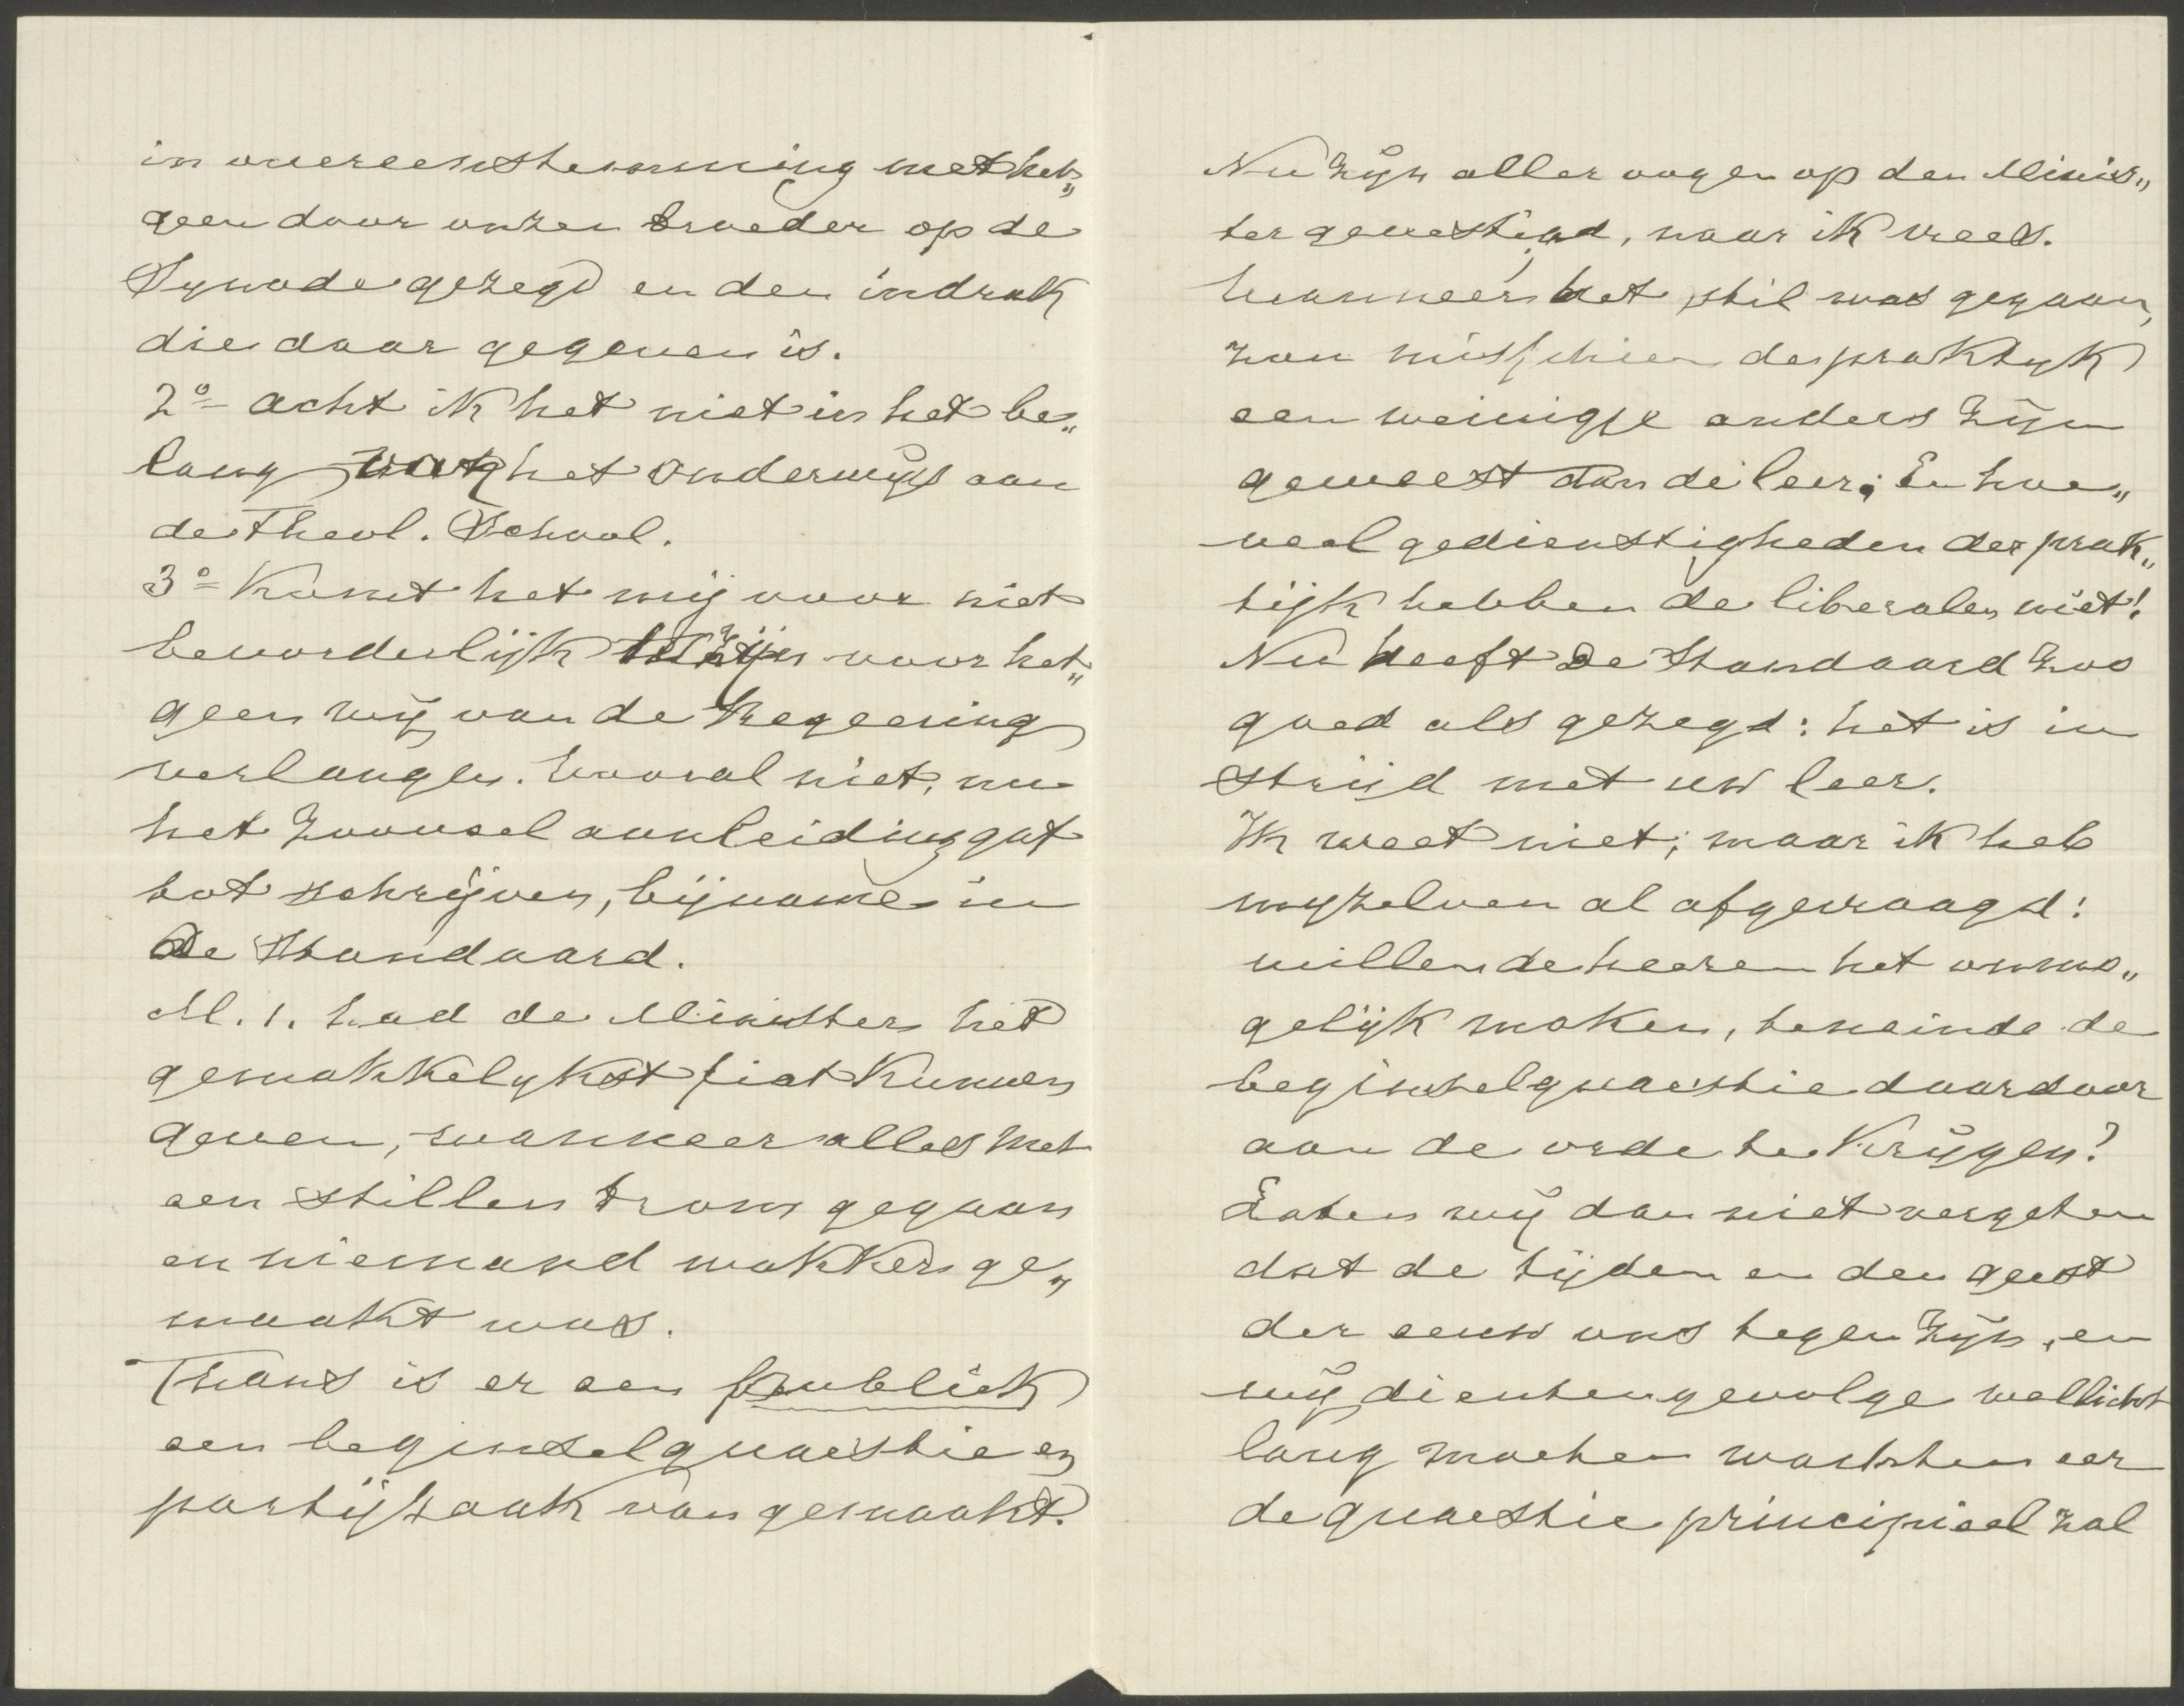 in overeenstemming met het„
geen door onzen broeder op de
Synode gezegd en den indruk
die daar gegeven is.
2o acht ik het niet in het be„
lang het onderwijs aan
de Theol. School.
3o Komt het mij voor niet
bevorderlijk te zijn voor het„
geen wij van de Regeering
verlangen. Vooral niet, nu
het Zooveel aanleiding gaf
tot schrijven, bijname in
De Standaard.
M. i. had de Minister het
gemakkelykst fiat kunnen
geven, wanneer alles met
een stillen trom gegaan
en niemand wakker ge„
maakt was.
Thans is er een publiek
een beginselquaestie en
partijzaak van gemaakt.
Nu zijn aller oogen op den Minis„
ter gevestigd, naar ik vrees.
Wanneer het stil was gegaan,
zou misschien de praktyk
een weinigje anders zijn
geweest dan de leer; En hoe„
veel gedienstigheden der prak„
tijk hebben de liberalen niet!
Nu heeft De Standaard zoo
goed als gezegd: het is in
strijd met uw leer.
Ik weet niet; maar ik heb
myzelven al afgevraagd:
willen de heeren het onmo„
gelijk maken, teneinde de
beginselquaestie daardoor
aan de orde te krijgen?
Laten wij dan niet vergeten
dat de tijden en den geest
der eeuw ons tegen zijn, en
wij dientengevolge wellicht
lang moeten wachten eer
de quaestie principieel zal